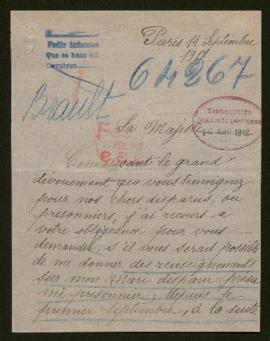 Petir informes
Que se haga en
Paris 14 Septembre
1917
64267
Beault
F
e.s.
Sa Majesté
Connaissant le grand
dévouement que vous témoignez
pour nos chers disparus, ou
prisonniers, j'ai recours à
votre obligeance pour vous
demander s'il vous serait possible
de me donner des renseignements
sur mon Mari disparu présu
mé prisonnier, depuis le
premier Septembre, à la suite